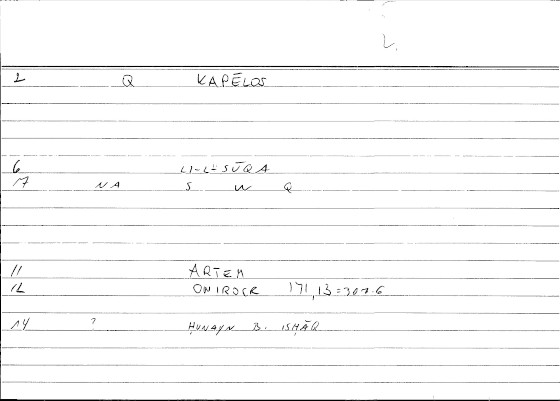 2 Q KAPĒLOS
6 LI-L-SŪQA
17 NA S W Q
11 ARTEM
12 ONIROCR 171,13=307.6
14 ? ḤUNAYN B. ISḤĀQ